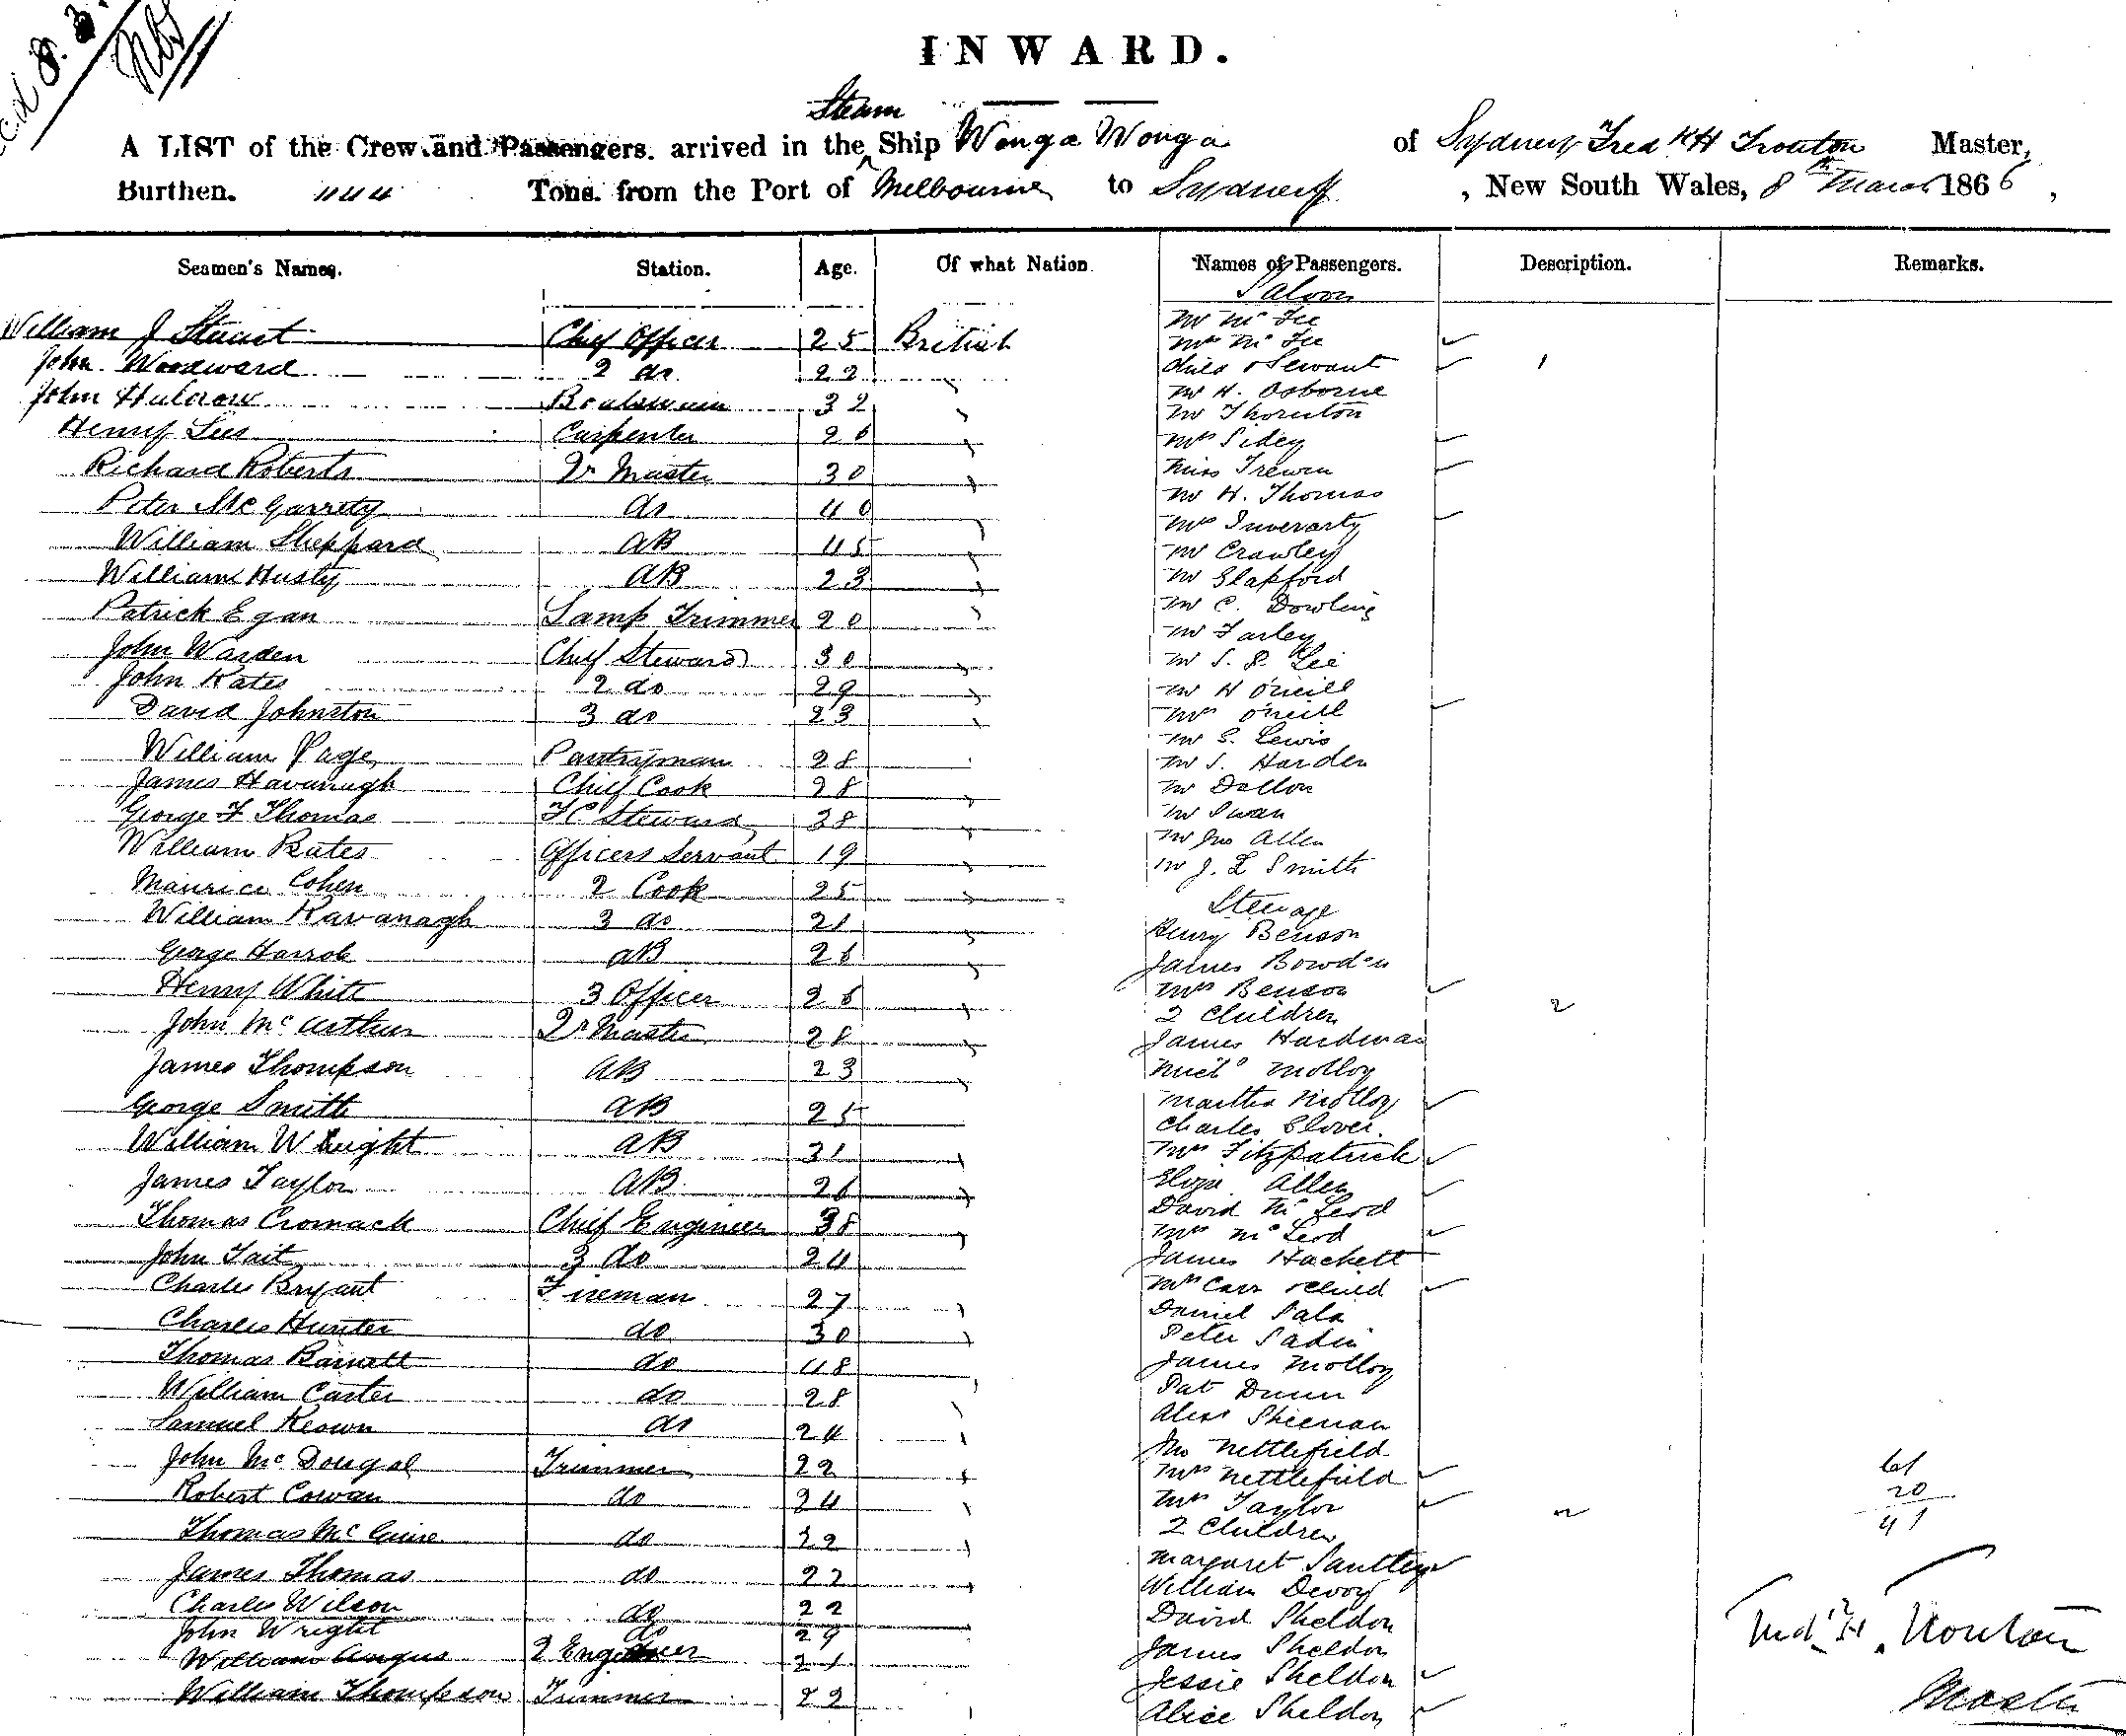 INWARD.
Steam
A LIST of the Crew and Passengers. arrived in the Ship Wonga Wonga of Sydney Fred K H Trouton Master,
Burthen. 444 Tons. from the Port of Melbourne to Sydney, New South Wales, 8th March 1866,
Seamen's Names. Station. Age. Of what Nation. Names of Passengers. Description. Remarks.
Saloon
William J Stuart Chief Officer 25 British
John Woodward 2 do 22
John Hulcrow Boatswain 32
Henry Lees Carpenter 26
Richard Roberts Qr Master 30
Peter McGarrety do 40
William Sheppard AB 45
William Husty AB 23
Patrick Egan Lamp Trimmer 20
John Warden Chief Steward 30
John Kates 2 do 29
David Johnston 3 do 23
William Page Pantryman 28
James Kavanagh Chief Cook 28
George F Thomas FC Steward 38
William Bates Officers Servant 19
Maurice Cohen 2 Cook 25
William Kavanagh 3 do 21
George Harrob AB 26
Henry White 3 Officer 26
John McArthur Qr Master 28
James Thompson AB 23
George Smith AB 25
William Wright AB 31
James Taylor AB 26
Thomas Cromack Chief Engineer 38
John Tait 3 do 24
Charles Bryant Fireman 27
Charles Hunter do 30
Thomas Barnett do 48
William Carter do 28
Samuel Keown do 24
John McDougal Trimmer 22
Robert Cowan do 24
Thomas McGuire do 32
James Thomas do 22
Charles Wilson do 22
John Wright do 29
William Angus 2 Engineer 21
William Thompson Trimmer 22
Mr McFee
Mrs McFee
Child & Servant 1
Mr H. Osborne
Mr Thornton
Mrs Sidey
Miss Trewin
Mr H. Thomas
Mrs Inverarty
Mr Crawley
Mr Slapford
Mr C. Dowling
Mr Farley
Mr S. P. Lee
Mr H O'neill
Mrs O'neill
Mr S. Lewis
Mr S. Harden
Mr Dallon
Mr Swan
Mr Jno Allen
Mr J. L Smith
Steerage
Henry Benson
James Bowden
Mrs Benson
2 Children 2
James Hardman
Michl Molloy
Martha Molloy
Charles Glover
Mrs Fitzpatrick
Eliza Allen
David McLeod
Mrs McLeod
James Hackett
Mrs Carr & Child
Daniel Sala
Peter Sadui
James Molloy
Pat Dunn
Alexr Sheenan
Jno Nettlefield
Mrs Nettlefield
Mrs Taylor
2 Children 2
Margaret Santley
William Devoy
David Sheldon
James Sheldon
Jessie Sheldon
Alice Sheldon
61
20
41
Fredk H. Trouton
Master